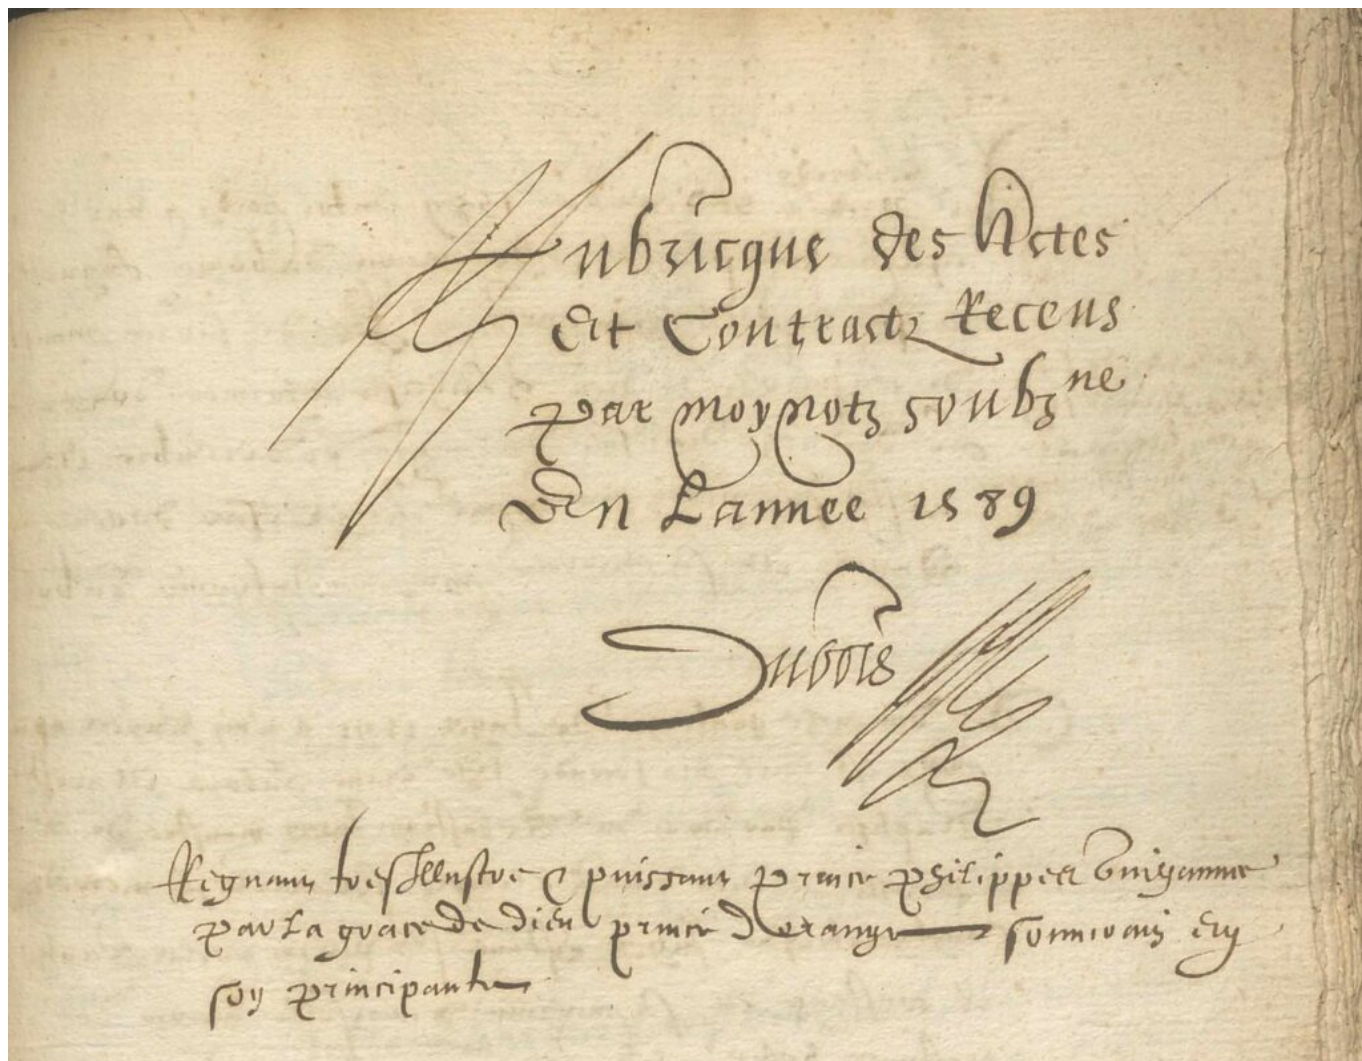 Rubricque des Actes
Et Contractz Receus
par moy notz soubzne
En Lannee 1589
Dubois
Regnant tres Illustre & puissant prince Philippes Guilhaume
par la grace de dieu prince Dorange souverain en
soy principaulte